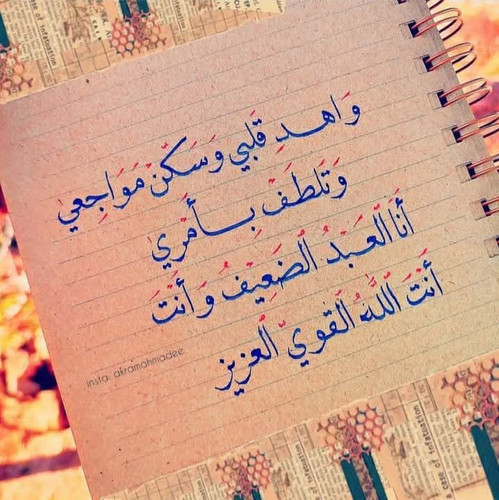 وَاهدِ قَلبي وَسَكّنْ مَوَاجِعي
وَتَلطَفْ بِأَمْري
أَنَا العَبْدُ الضَعِيفُ وَأَنْتَ
أَنْتَ اللَّهُ القَويّ العَزيز
insta: akramahmadee